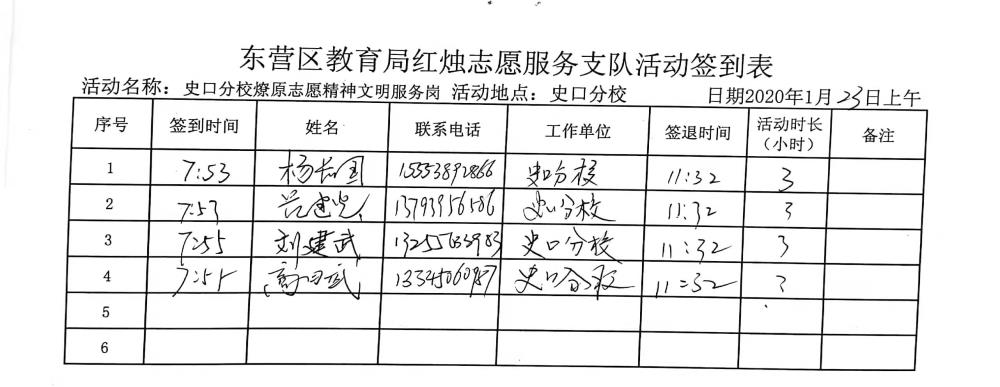 东营区教育局红烛志愿服务支队活动签到表
活动名称：史口分校燎原志愿精神文明服务岗 活动地点：史口分校 日期2020年1月23日上午
序号 签到时间 姓名 联系电话 工作单位 签退时间 活动时长（小时） 备注
1 7:53 杨长国 15553892866 史口分校 11:32 3
2 7:53 13793956586 史口分校 11:32 3
3 7:55 刘建武 13255633983 史口分校 11:32 3
4 史口分校 11:32 3
5
6